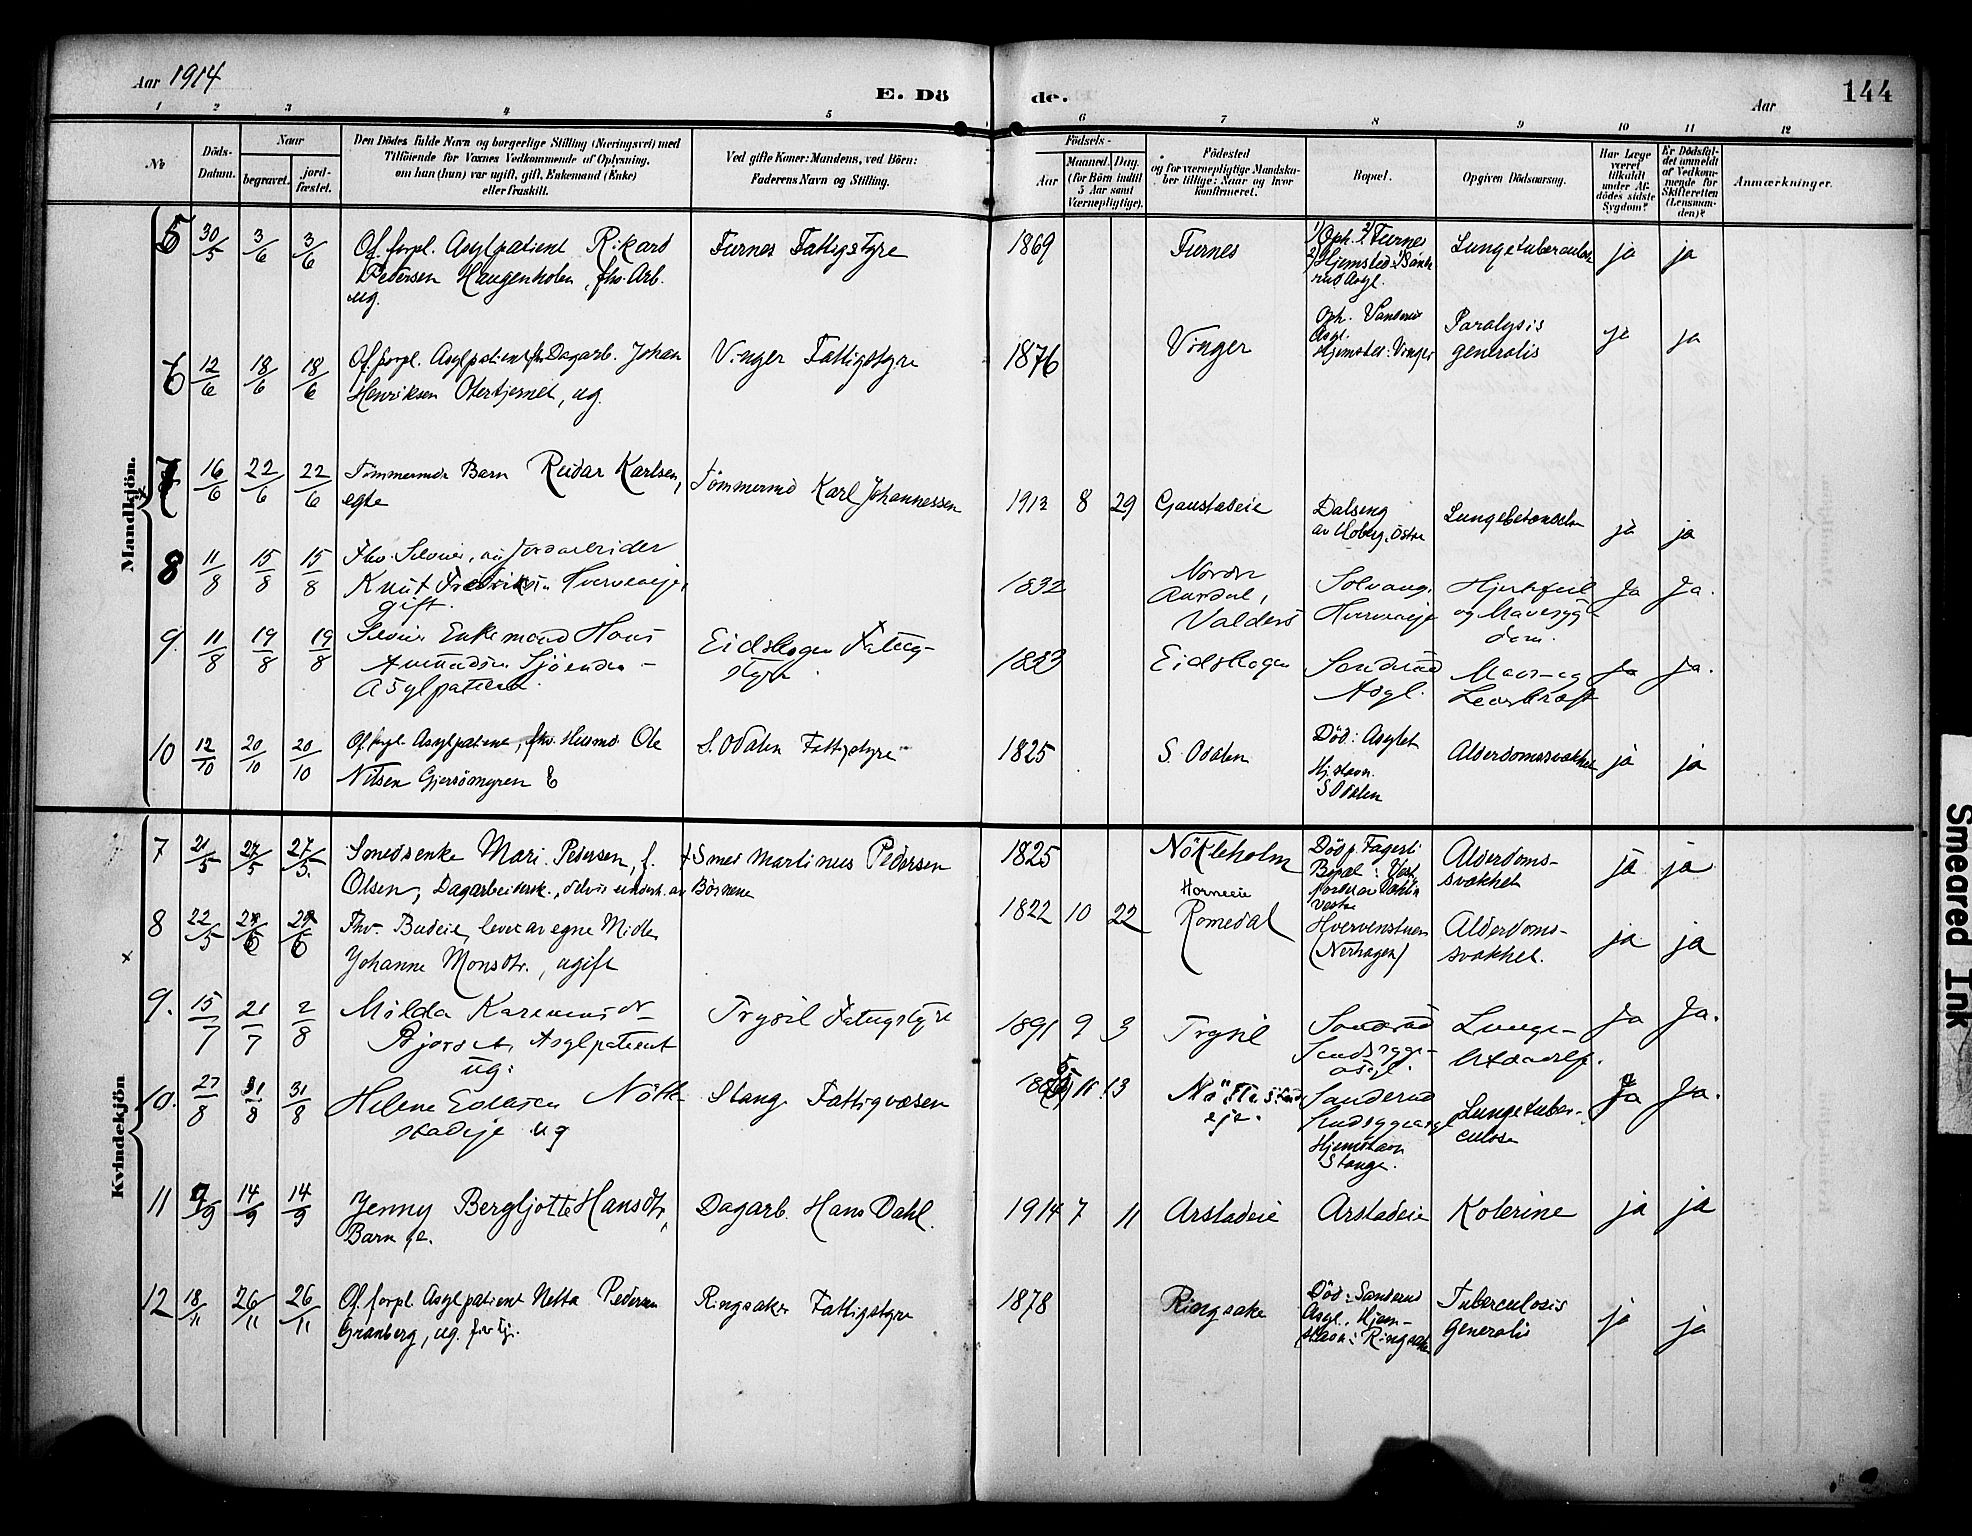 Aar 1914
E. Döde.
Aar
144
1 2 3 4 5 6 7 8 9 10 11 12
No
Döds-
Datum.
Naar
begravet.
jord-
fæstet.
Den Dödes fulde Navn og borgerlige Stilling (Næringsvei) med
Tilföiende for Voxnes Vedkommende af Oplysning,
om han (hun) var ugift, gift, Enkemand (Enke)
eller fraskilt.
Ved gifte Koner: Mandens, ved Börn:
Faderens Navn og Stilling.
Födsels-
Aar
Maaned.
Dag.
(for Börn indtil
5 Aar samt
Værnepligtige).
Födested
og for værnepligtige Mandskaber
tillige: Naar og hvor
konfirmeret.
Bopæl.
Opgiven Dödsaarsag.
Har Læge
været
tilkaldt
under Af-
dödes sidste
Sygdom?
Er Dödsfal-
det anmeldt
af Vedkom-
mende for
Skifteretten
(Lensman-
den)?
Anmærkninger.
Mandkjön.
5 30/5 3/6 3/6 Of. forpl. Asylpatient Rikard
Pedersen Haugenholen, fhv. Arb.
ug.
Furnes Fattigstyre
1869
Furnes
Oph. Furnes
Hjemsted:
Asyl.
Lungetuberculose
ja ja
6 12/6 18/6 18/6 Of. forpl. Asylpatient fhv Dagarb. Johan
Henriksen Otertjernet, ug.
Vinger Fattigstyre
1876
Vinger
Oph. Sanderud
Asyl.
Hjemsted: Vinger
Paralysis
generalis
ja ja
7 16/6 22/6 22/6 Tømmermds Barn Reidar Karlsen,
egte
Tømmermd Karl Johannessen
1913 8 29
Gaustadeie
Dalseng
av Hoberg, østre
Lungebetændelse
ja ja
8 11/8 15/8 15/8 Fhv. Selveier, nu Jordarbeider
Knut Fredriksen Hverveneje,
gift.
1832
Nordre
Aurdal,
Valders
Solvang,
Herveneje
Hjertefeil
og Mavesyg
dom.
Ja Ja.
9. 11/8 19/8 19/8 Selveier Enkemand Hans
Amundsen Sjøenden -
Asylpatient.
Eidskogen Fattig-
styre.
1833
Eidskogen
Sanderud
Asyl.
Mave- og
Leverkræft
Ja Ja.
10 12/10 20/10 20/10 Of. forpl. Asylpatient, fhv. Husmd. Ole
Nilsen Gjersömyren E
S. Odalen Fattigstyre
1825
S. Odalen
Död: Asylet
Hj. stavn.
S Odalen
Alderdomssvækkelse
ja ja
Kvindekjön
7 21/5 27/5 27/5. Smedsenke Mari Pedersen, f.
Olsen, Dagarbeiderske, delvis underh. av
† Smed Martinus Pedersen
Börnene
1825
Nökleholm
Död p. Fagerli
Bopæl: Vest
Alderdoms-
svækkelse
ja ja
8 22/5 Fhv. Budeie, lever av egne Midler
Johanne Monsdtr., ugift
1822 10 22
Horneeie
Romedal
Hvervenstuen
(Nerhagen)
Alderdoms-
svækkelse.
ja ja
9. 15/7 21/7 2/8 Milda Karenusdtr
Bjørset, Asylpatient
ug.
Trysil Fattigstyre
1891 9 3
Trysil
Sanderud
Sindssyge-
asyl.
Lunge-
Ja Ja.
10. 27/8 31/8 31/8 Helene Nökle
stadeje ug
Stange Fattigvæsen
11 13
Nöklestad
eje.
Sanderud
Sindssygeasyl
Hjemstavn
Stange.
Lungetuber-
culose
Ja Ja.
11 9/9 14/9 14/9 Jenny Bergljotte Hansdtr,
Barn ge.
Dagarb. Hans Dahl.
1914 7 11
Arstadeie
Arstadeie
Kolerine
ja ja
12 18/11 26/11 26/11 Of. forpl. Asylpatient Netta Pedersen
Granberg, ug. fhv tj.
Ringsaker Fattigstyre
1878
Ringsaker
Död: Sanderud
Asyl. Hjem-
stavn: Ringsaker
Tuberculosis
generalis
ja ja
Smeared Ink